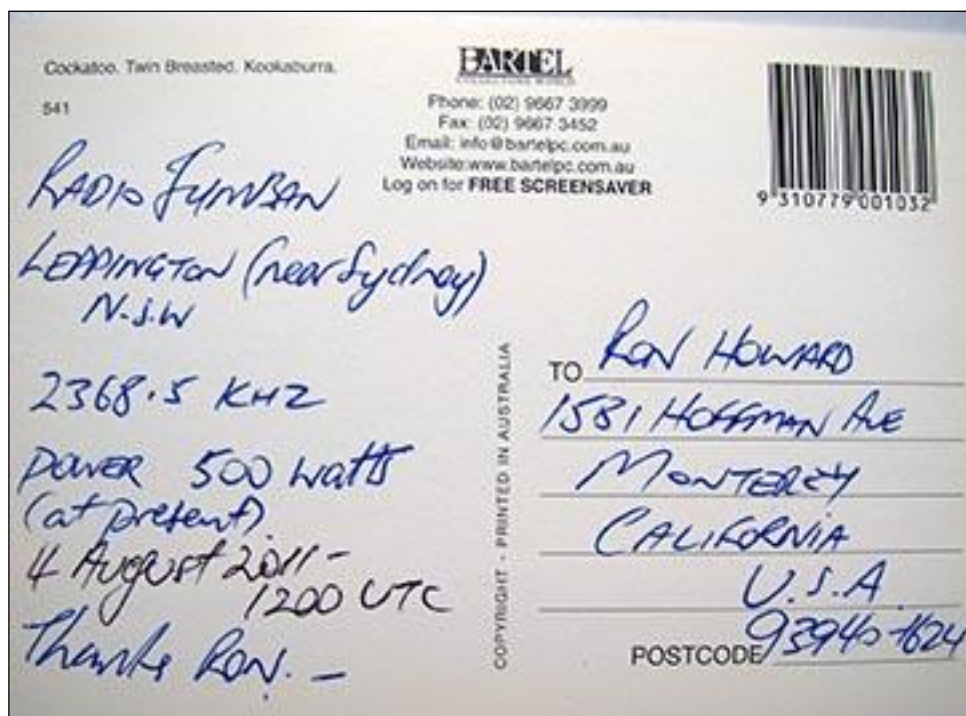 Cockatoo. Twin Breasted. Kookaburra.
541
BARTEL
COLLECTORS WORLD
Phone: (02) 9667 3999
Fax: (02) 9667 3452
Email: info@bartelpc.com.au
Website:www.bartelpc.com.au
Log on for FREE SCREENSAVER
9 310779 001032
RADIO SYMBAN
LEPPINGTON (near Sydney)
N.S.W
2368.5 KHZ
POWER 500 watts
(at present).
4 August 2011-
1200 UTC
Thanks RON. -
COPYRIGHT - PRINTED IN AUSTRALIA
TO RON HOWARD
1581 HOFFMAN AVE
MONTEREY
CALIFORNIA
U.S.A.
POSTCODE 93940-1624